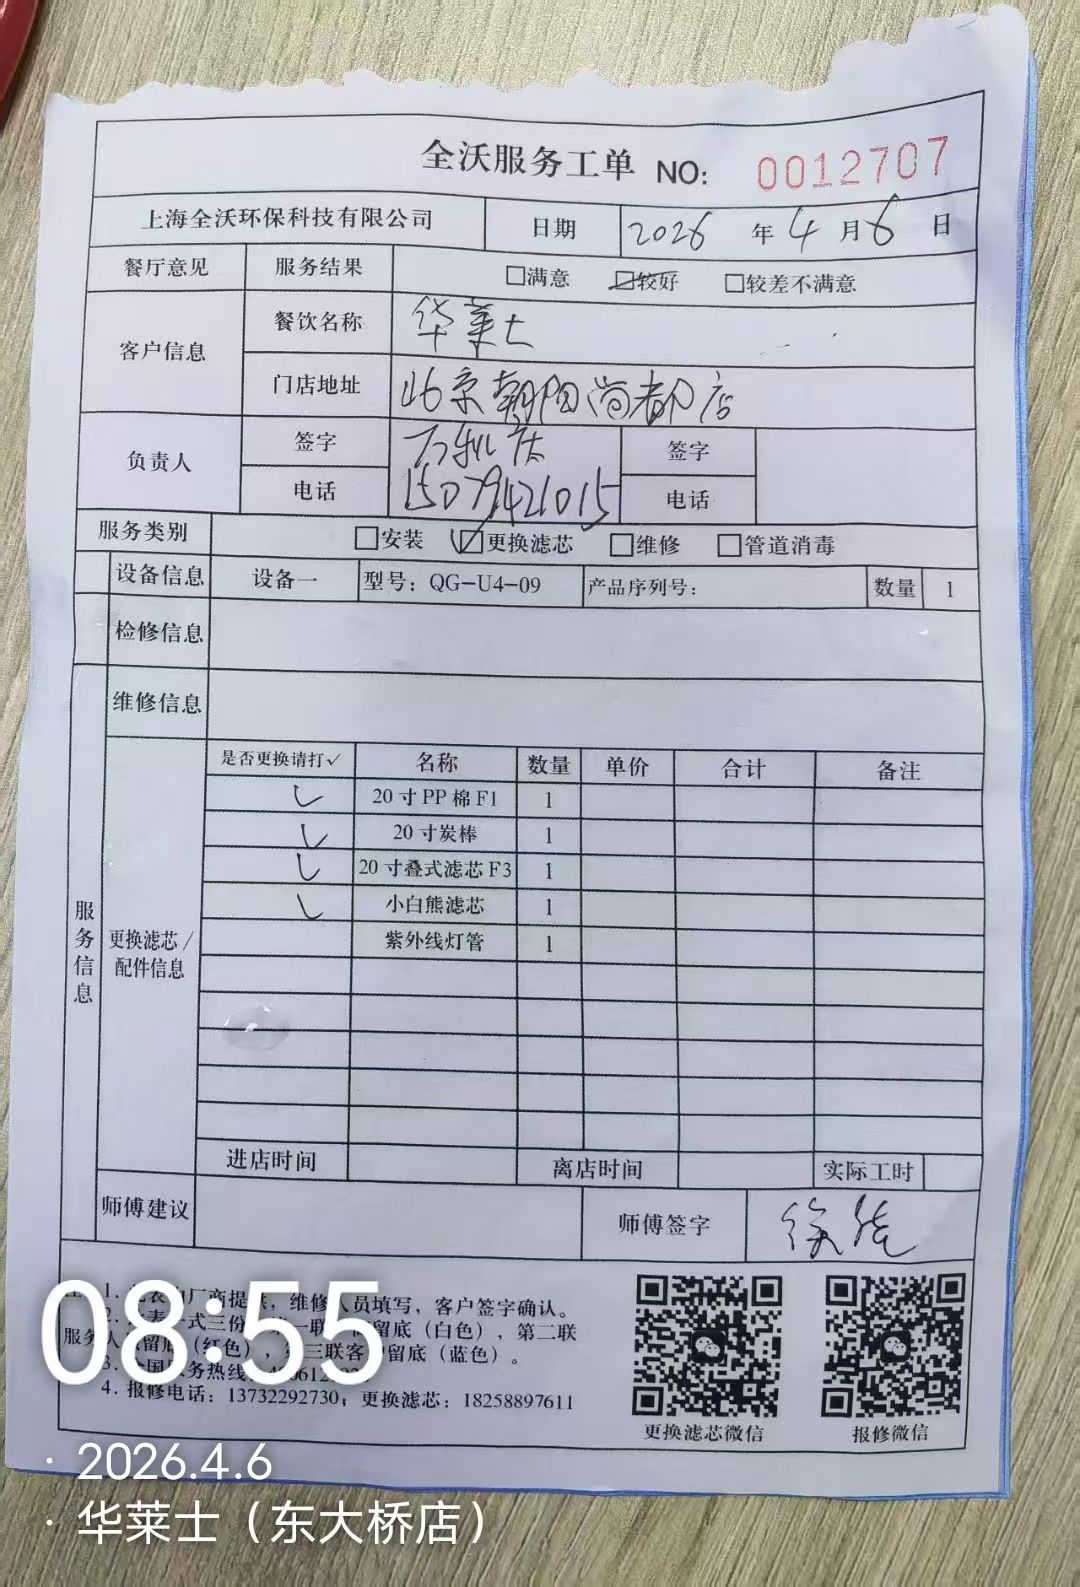 全沃服务工单 NO: 0012707
上海全沃环保科技有限公司 日期 2026 年 4 月 6 日
餐厅意见 服务结果 □满意 ☑较好 □较差不满意
客户信息 餐饮名称 华莱士
门店地址 北京朝阳尚都店
负责人 签字 签字
电话 15079421015 电话
服务类别 □安装 ☑更换滤芯 □维修 □管道消毒
设备信息 设备一 型号：QG-U4-09 产品序列号： 数量 1
检修信息
维修信息
服务信息
更换滤芯/配件信息
是否更换请打✓ 名称 数量 单价 合计 备注
✓ 20寸PP棉F1 1
✓ 20寸炭棒 1
✓ 20寸叠式滤芯F3 1
✓ 小白熊滤芯 1
紫外线灯管 1
进店时间 离店时间 实际工时
师傅建议 师傅签字
1. 厂商提 ，维修 员填写，客户签字确认。
2. 一式三份 留底（白色），第二联
服务人 留底（红色）， 三联客户留底（蓝色）。
3. 全国服务热线
4. 报修电话：13732292730；更换滤芯：18258897611
更换滤芯微信 报修微信
08:55
· 2026.4.6
· 华莱士（东大桥店）